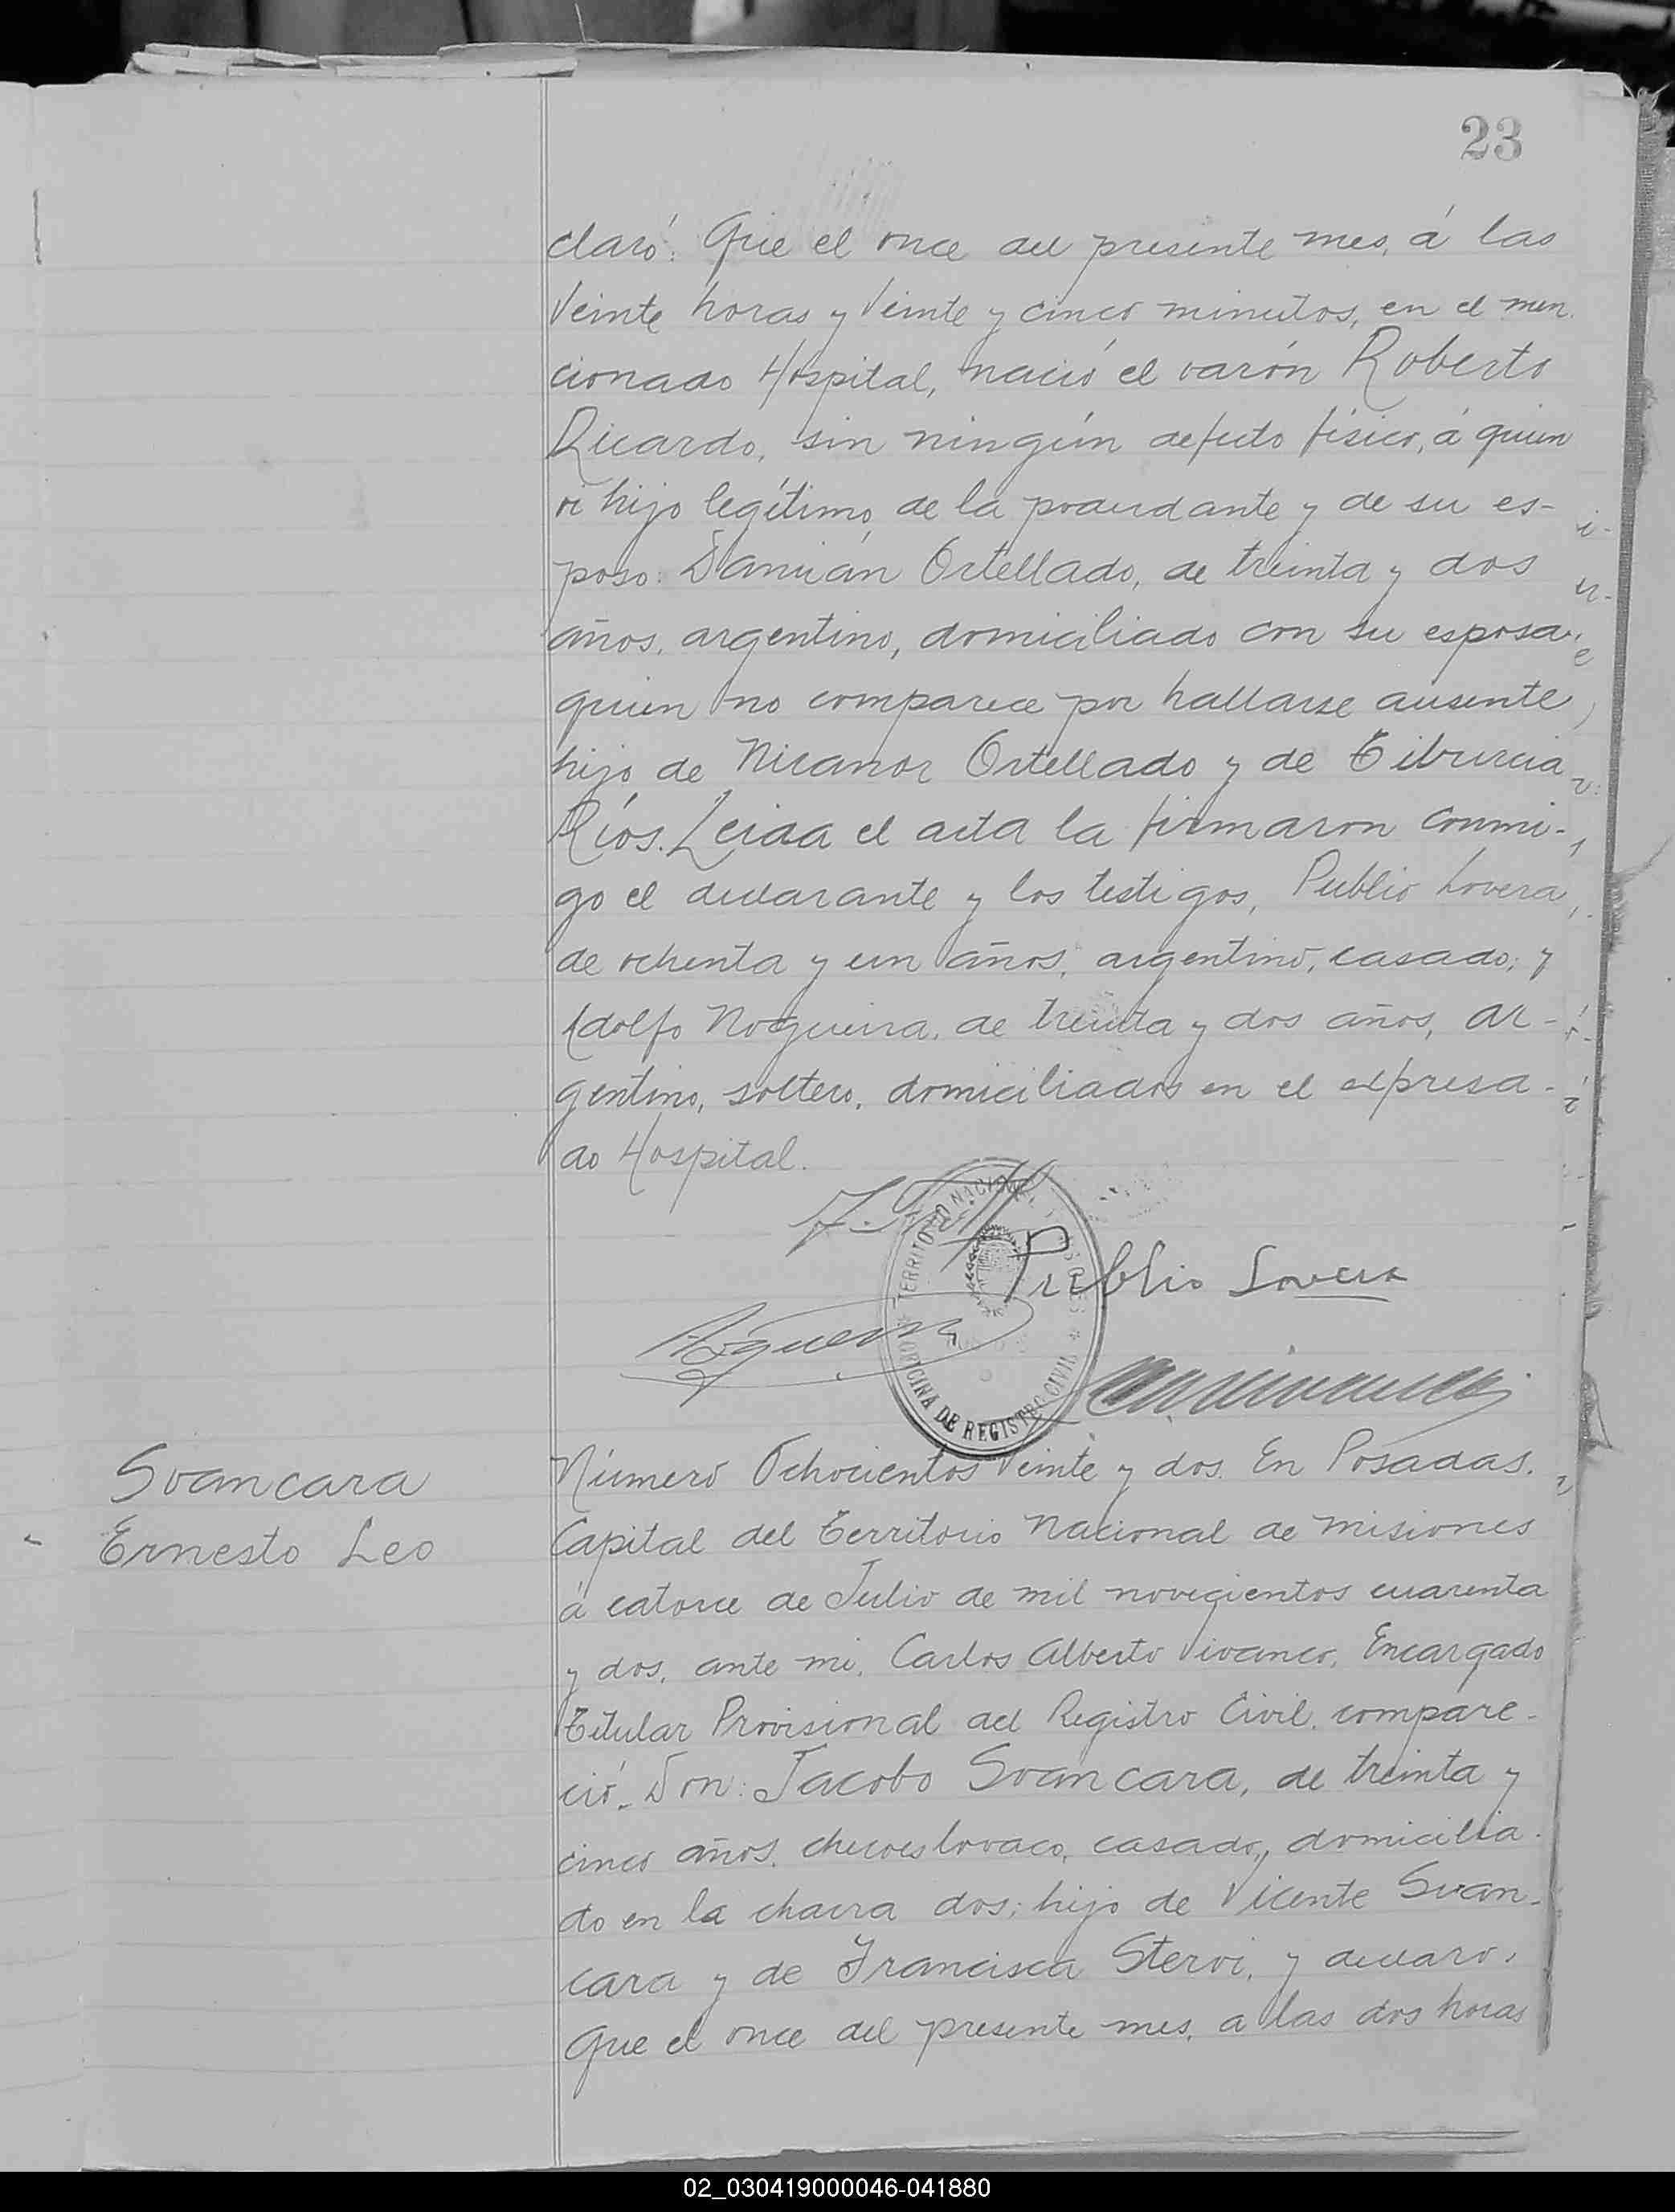 23
claró: Que el once del presente mes, á las
veinte horas y veinte y cinco minutos, en el men
cionado Hospital, nació el varón Roberto
Ricardo, sin ningún defecto físico, á quien
vi hijo legítimo, de la preaudante y de su es-
poso: Damián Ortellado, de treinta y dos
años, argentino, domiciliado con su esposa,
quien no comparece por hallarse ausente,
hijo de Nicanor Ortellado y de Tiburcia
Ríos. Leida el acta la firmaron conmi-
go el declarante y los testigos, Publio Lovera,
de ochenta y un años, argentino, casado; y
Adolfo Nogueira, de treinta y dos años, ar-
gentino, soltero, domiciliados en el expresa-
do Hospital.
TERRITORIO NACIONAL MISIONES
OFICINA DE REGISTRO CIVIL
Publio Lovera
Svancara
Ernesto Leo
Número Ochocientos veinte y dos. En Posadas,
Capital del Territorio Nacional de Misiones
á catorce de Julio de mil novecientos cuarenta
y dos, ante mi, Carlos Alberto Vivanco, Encargado
Titular Provisional del Registro Civil, compare-
ció Don: Jacobo Svancara, de treinta y
cinco años, checoeslovaco, casado, domicilia-
do en la chacra dos; hijo de Vicente Svan-
cara y de Francisca Stervi, y declaró:
Que el once del presente mes, a las dos horas
02_030419000046-041880